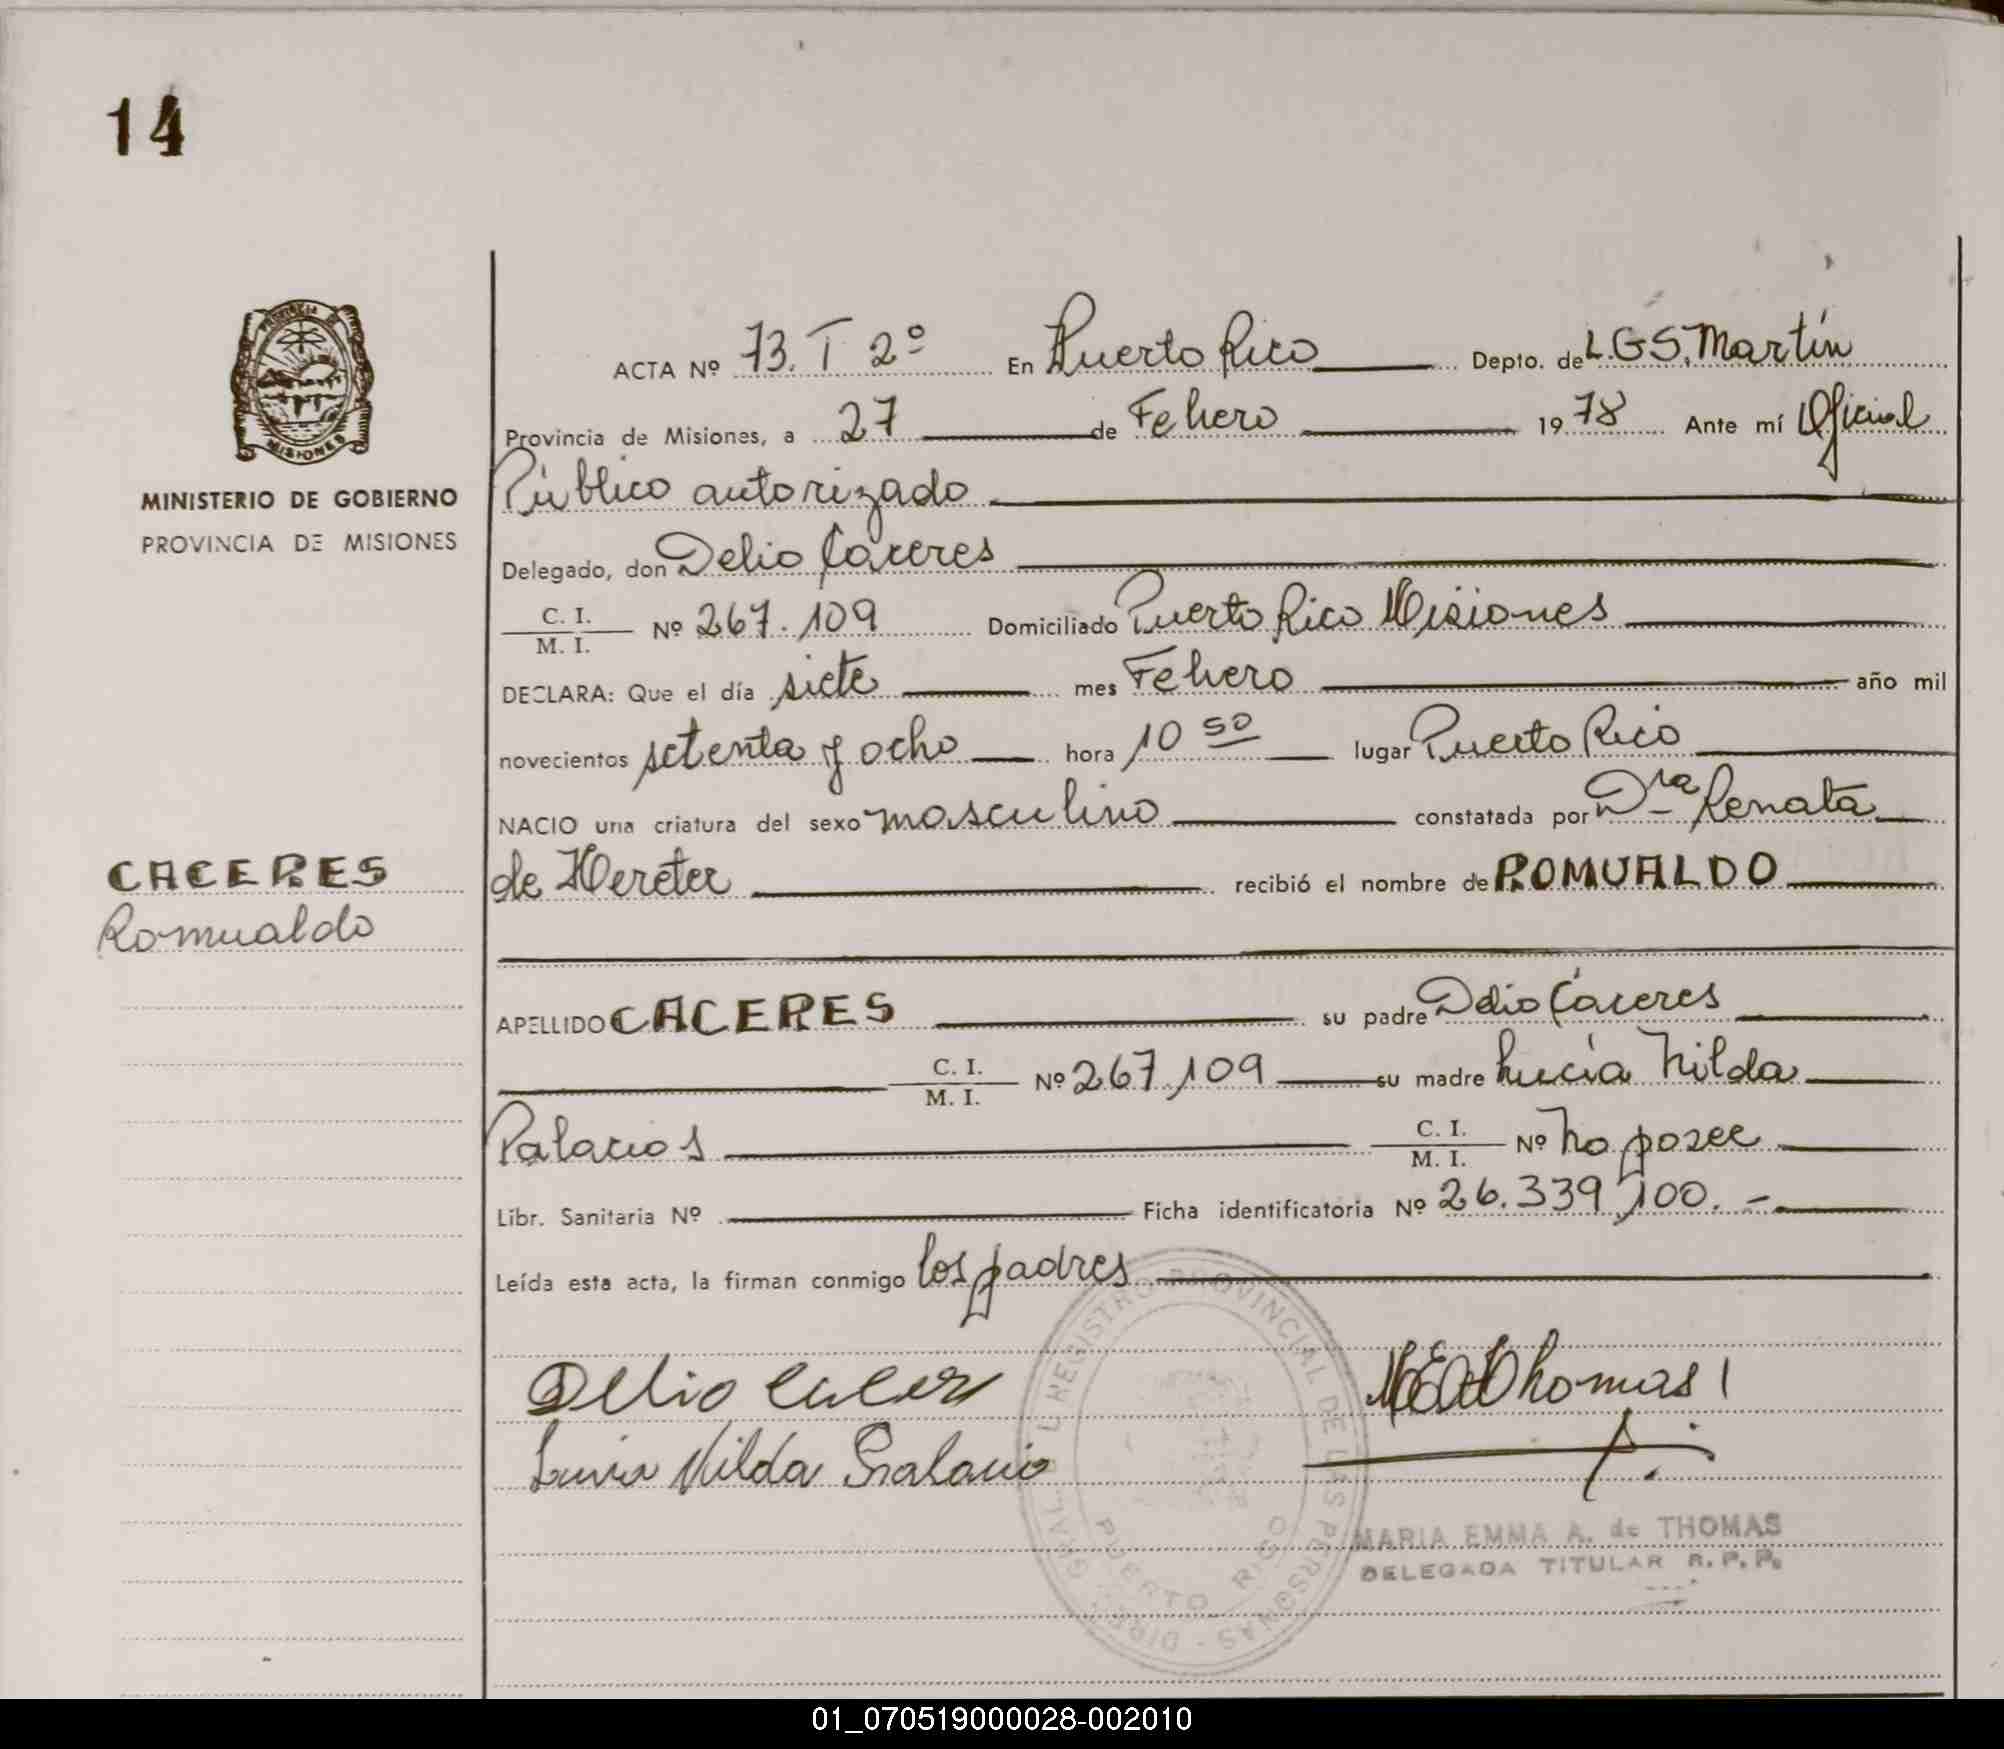 14
PROVINCIA DE
MISIONES
MINISTERIO DE GOBIERNO
PROVINCIA DE MISIONES
CACERES
Romualdo
ACTA Nº 73. T 2º En Puerto Rico Depto. de L.G.S. Martín
Provincia de Misiones, a 27 de Febrero 1978 Ante mí Oficial
Público autorizado
Delegado, don Delio Cáceres
C. I.
M. I. Nº 267.109 Domiciliado Puerto Rico Misiones
DECLARA: Que el día siete mes Febrero año mil
novecientos setenta y ocho hora 10 50 lugar Puerto Rico
NACIO una criatura del sexo masculino constatada por Dra Renata
de Hereter recibió el nombre de ROMUALDO
APELLIDO CACERES su padre Delio Cáceres
C. I.
M. I. Nº 267.109 su madre Lucía Nilda
Palacios C. I.
M. I. Nº No posee
Libr. Sanitaria Nº Ficha identificatoria Nº 26.339.100.-
Leída esta acta, la firman conmigo los padres
Delio
Nilda Palacio
Thomas
DIREC. GRAL. DEL REGISTRO PROVINCIAL DE LAS PERSONAS -
PUERTO RICO
MARIA EMMA A. de THOMAS
DELEGADA TITULAR R. P. P.
01_070519000028-002010